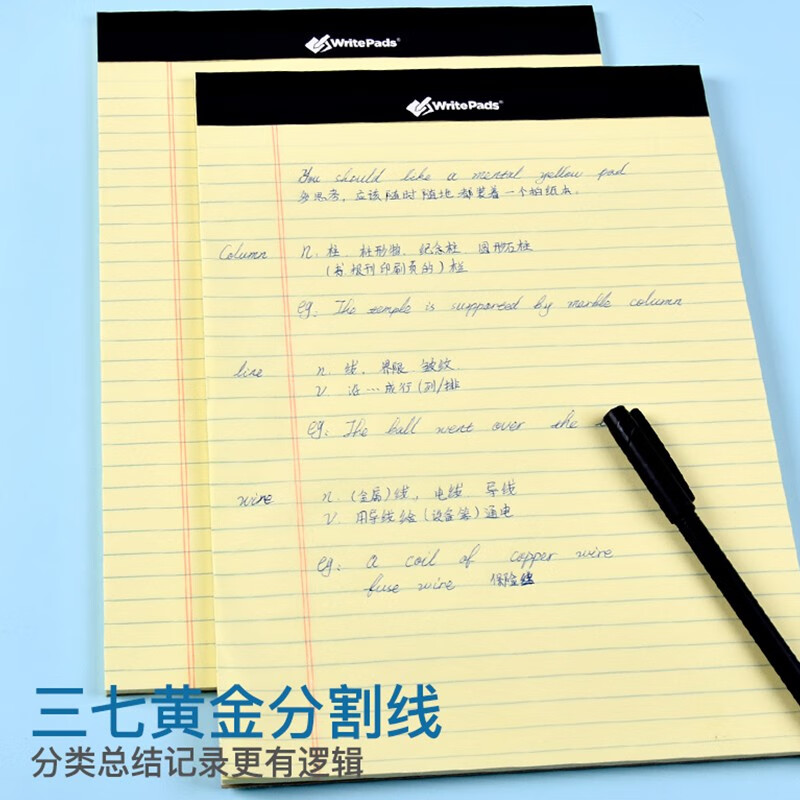 WritePads
WritePads
You should like a mental yellow pad
多思考，应该随时随地都装着一个拍纸本.
Column
n. 柱 柱形物. 纪念柱 圆形石柱
(书报刊印刷页的) 栏
eg: The temple is supported by marble column
line
n. 线. 界限. 皱纹.
v. 沿…成行(列/排
eg: The ball went over the
wire
n. (金属)线, 电线. 导线
v. 用导线给(设备等)通电
eg: a coil of copper wire
fuse wire 保险丝
三七黄金分割线
分类总结记录更有逻辑